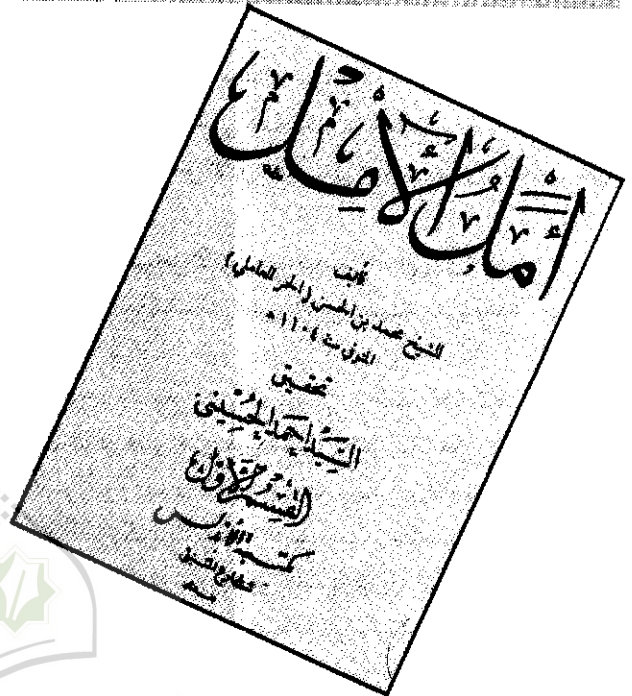 أمل الآمل
تأليف
الشيخ محمد بن الحسن (الحر العاملي)
المتوفى سنة ١١٠٤ ه
تحقيق
السيد أحمد الحسيني
القسم الأول
مكتبة الأندلس
شارع المتنبي